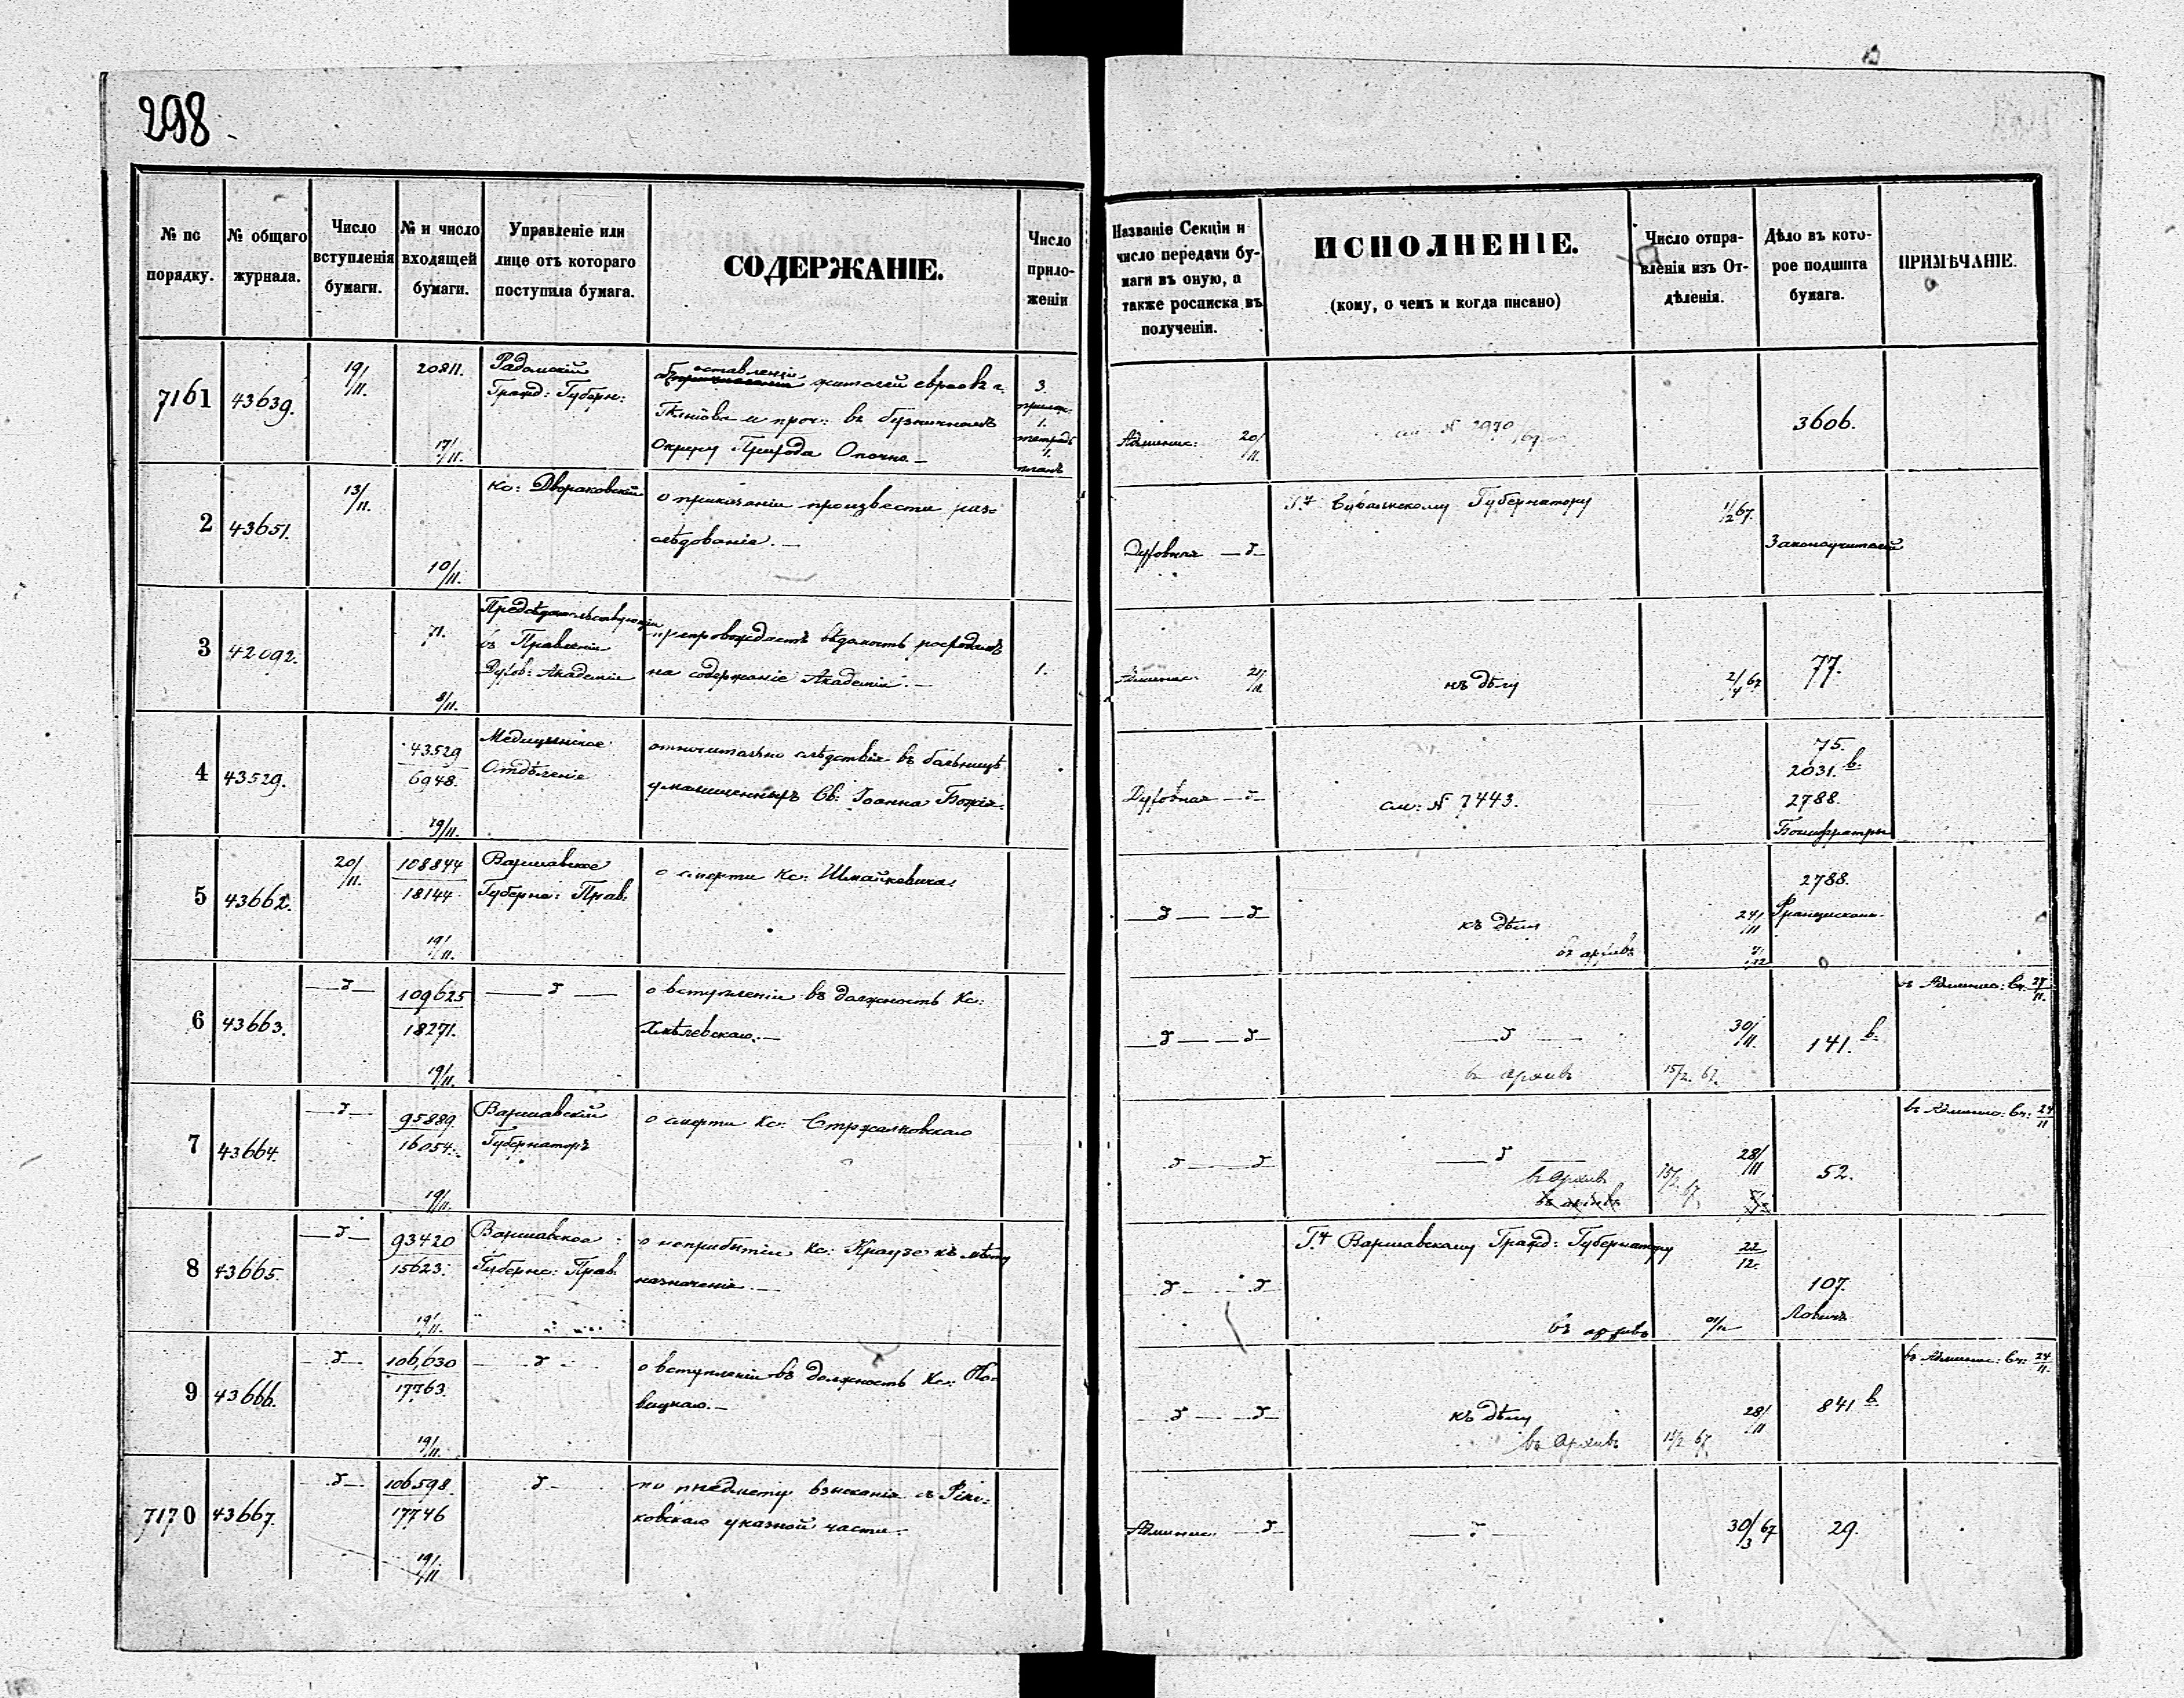 298
№ по порядку.
№ общаго журнала.
Число вступленія бумаги.
№ и число входящей бумаги.
Управленіе или лице отъ котораго поступила бумага.
СОДЕРЖАНІЕ.
Число приложеній
Названіе Секціи и число передачи бумаги въ оную, а также росписка въ полученіи.
ИСПОЛНЕНІЕ.
(кому, о чемъ и когда писано)
Число отправленія изъ Отдѣленія.
Дѣло въ которое подшита бумага.
ПРИМѢЧАНІЕ.
7161 43639. 19/11. 20811. 17/11.
Радомскій
Гражд: Губерн:
оставленіи жителей евреевъ г.
и проч: въ бузничномъ
Округу Города Опочно.
3 прилож: 1. тетрадь 1. планъ
Админис: 20/11.
см. № 2970/67
3606.
2 43651. 13/11. 10/11.
Кс: Двораковскій
о приказаніи произвести раз-
слѣдованіе.
Духовная — δ —
Г.ну Сувалкскому Губернатору
1/12 67.
Законоучителей
3 42092. 71. 8/11.
Предсѣдательствующій
въ Правленіи
Духов: Академіи
препровождаетъ вѣдомость росходамъ
на содержаніе Академіи.
1.
Админис: 21/11.
къ дѣлу
2/4 67
77.
4 43529. 43529 6948. 19/11.
Медицинское
Отдѣленіе
относительно слѣдствія въ больницѣ
умалишенныхъ Св: Іоанна Божія.
Духовная — δ —
см: № 7443.
75.
2031. в.
2788.
Бонифратры
5 43662. 20/11. 108844 18144 19/11.
Варшавское
Губернс: Прав:
о смерти Кс: Шмайкевича
— δ — — δ —
къ дѣлу
въ архивъ
24/11
2788.
Францискан.
6 43663. — δ — 109625 18271. 19/11.
— δ —
о вступленіи въ должность Кс:
Хмѣлевскаго.
— δ — — δ —
— δ —
въ Архивъ
30/11.
15/2. 67.
141. в.
въ Админис: Сч: 27/11.
7 43664. — δ — 95889. 16054. 19/11.
Варшавскій
Губернаторъ
о смерти Кс: Стржалковскаго
δ — δ
— δ —
въ Архивъ
въ архивъ
28/11
15/2 67.
52.
въ Админис: Сч: 24/11
8 43665. — δ — 93420 15623. 19/11.
Варшавское
Губернс: Прав:
о неприбытіи Кс: Краузе къ мѣсту
назначенія.
δ — δ
Г.ну Варшавскому Гражд: Губернатору
въ архивъ
22/12.
107.
Ловичъ
9 43666. — δ — 106630 17763. 19/11.
— δ —
о вступленіи въ должность Кс: Но-
вицкаго.
— δ — — δ —
къ дѣлу
въ Архивъ
28/11
15/2 67
841 в
въ Админис: Сч: 24/11.
7170 43667. — δ — 106598. 17746 19/11
δ —
по предмету взысканія съ
ковскаго указной части.
Админис. — δ
— δ —
30/3 67
29.